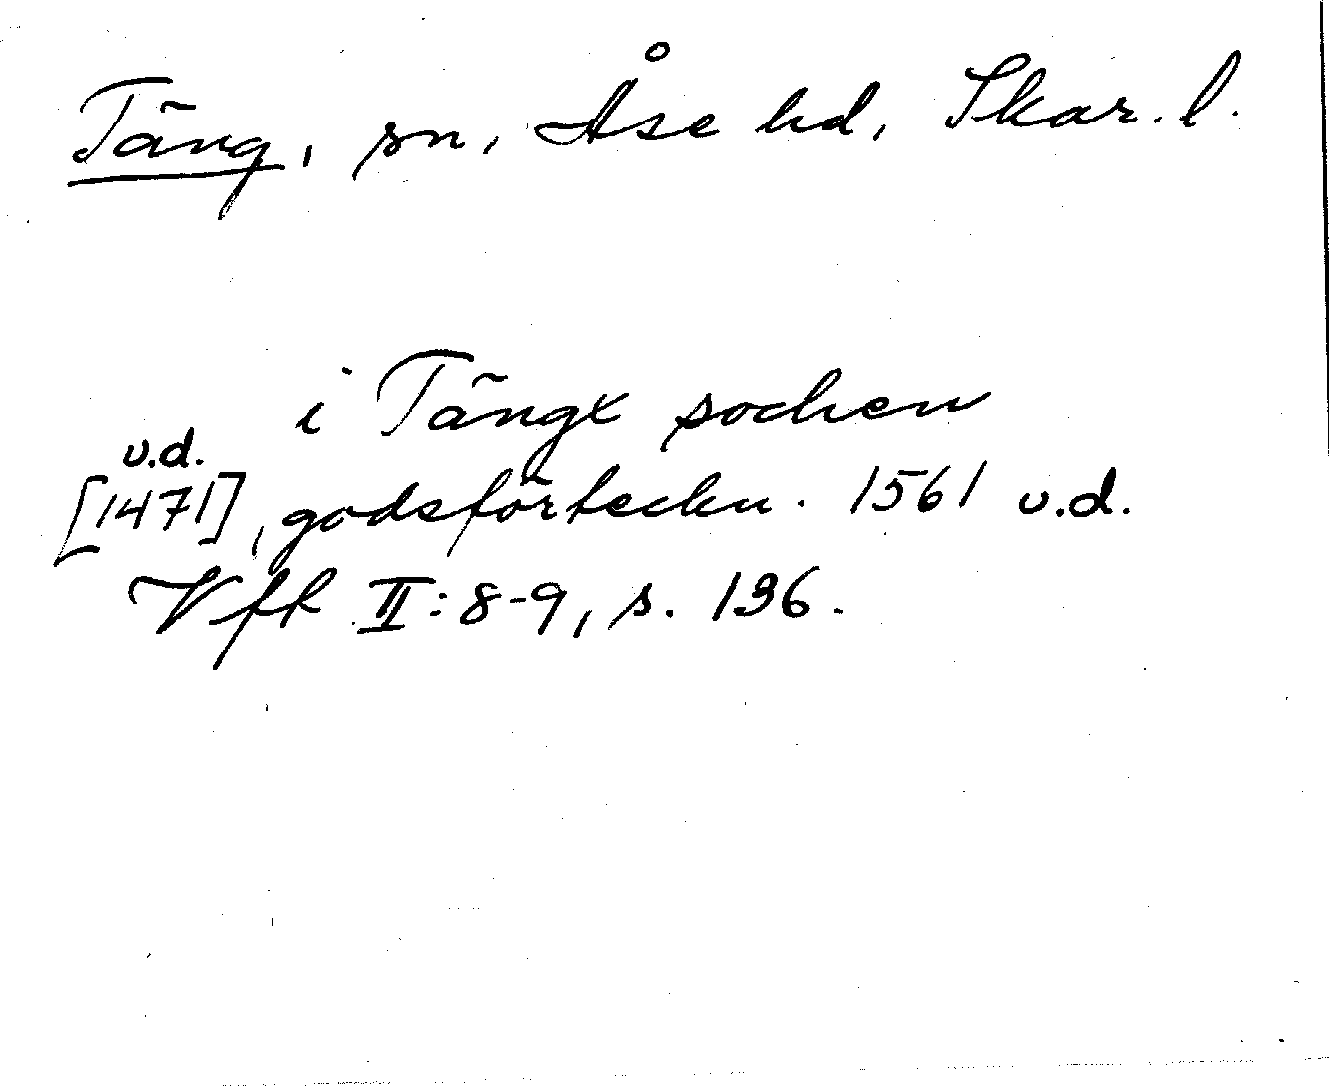 Täng, sn, Åse hd, Skar. l.
i Tängx sochen
u.d.
[1471], godsförteckn. 1561 u.d.
Vfk II:8-9, s. 136.